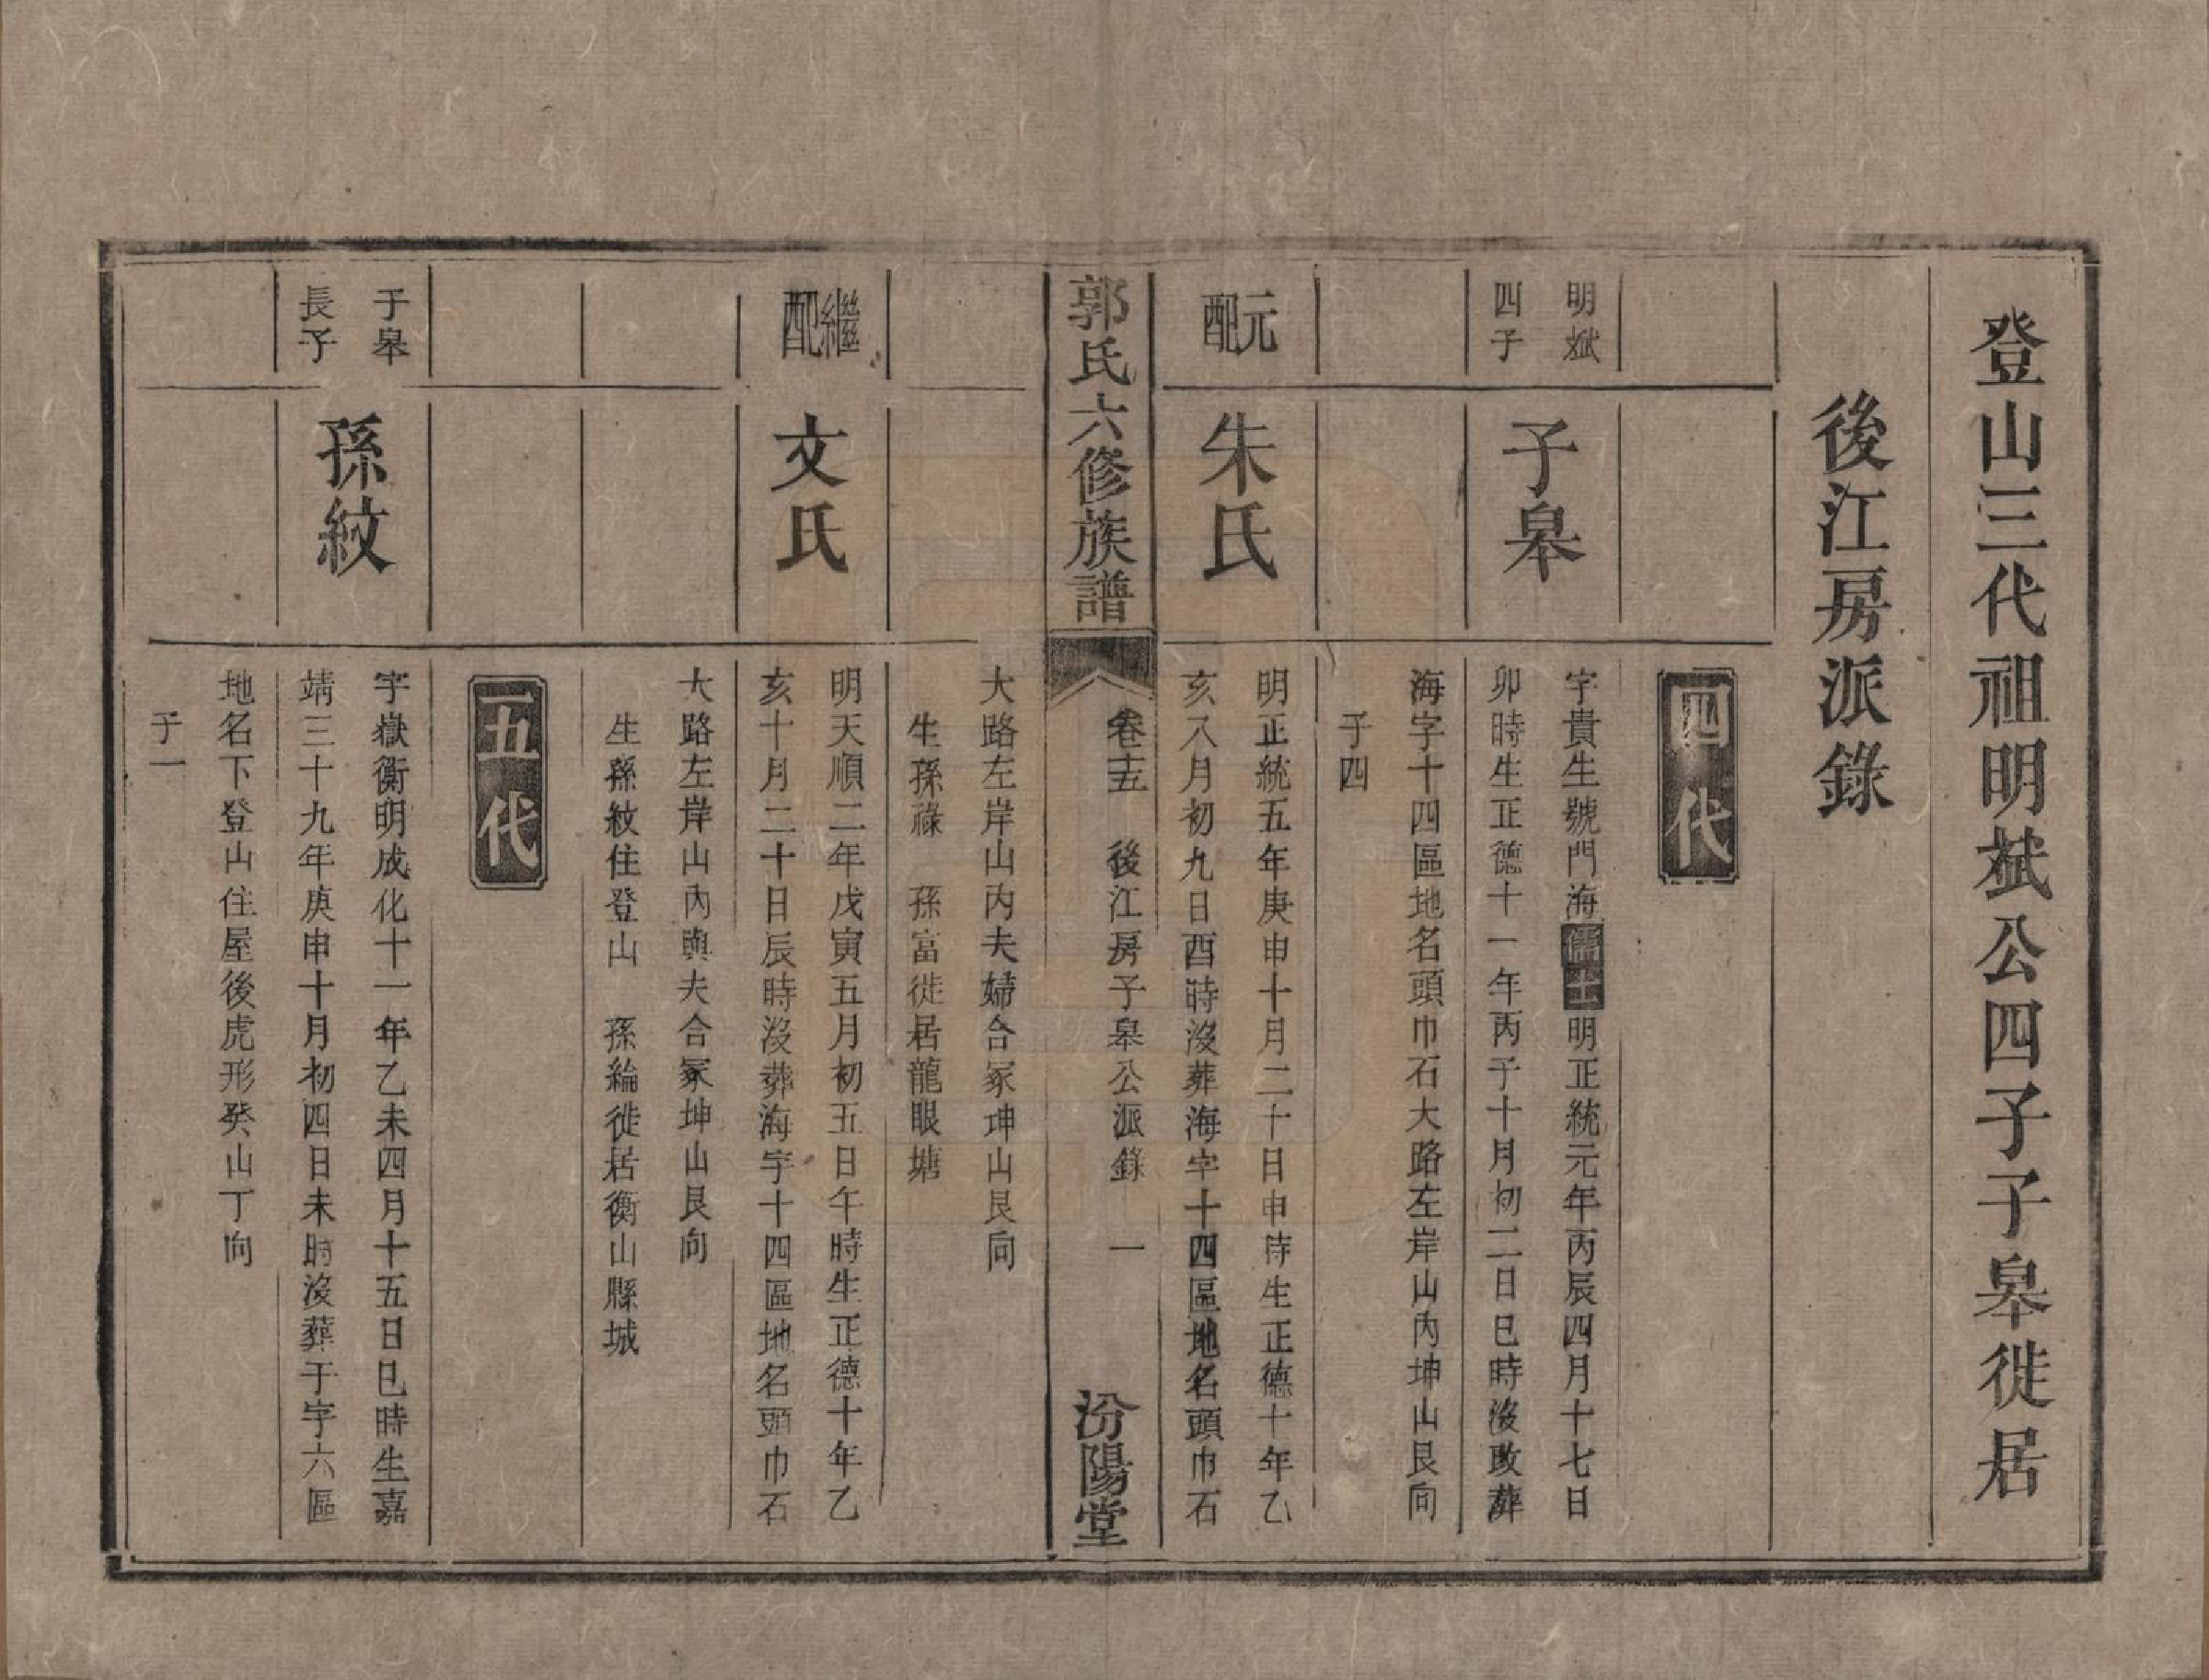 登山三代祖明斌公四子子皋徙居
後江房派錄
四代
明斌
四子
子皋
字貴生號門海儒士明正統元年丙辰四月十七日
卯時生正德十一年丙子十月初二日巳時沒改葬
海字十四區地名頭巾石大路左岸山內坤山艮向
子四
元配
朱氏
明正統五年庚申十月二十日申時生正德十年乙
亥八月初九日酉時沒葬海字十四區地名頭巾石
郭氏六修族譜
卷十五 後江房子皋公派錄 一
汾陽堂
大路左岸山內夫婦合冢坤山艮向
生孫祿 孫富徙居龍眼塘
繼配
文氏
明天順二年戊寅五月初五日午時生正德十年乙
亥十月二十日辰時沒葬海字十四區地名頭巾石
大路左岸山內與夫合冢坤山艮向
生孫紋住登山 孫綸徙居衡山縣城
五代
子皋
長子
孫紋
字嶽衡明成化十一年乙未四月十五日巳時生嘉
靖三十九年庚申十月初四日未時沒葬于字六區
地名下登山住屋後虎形癸山丁向
子一